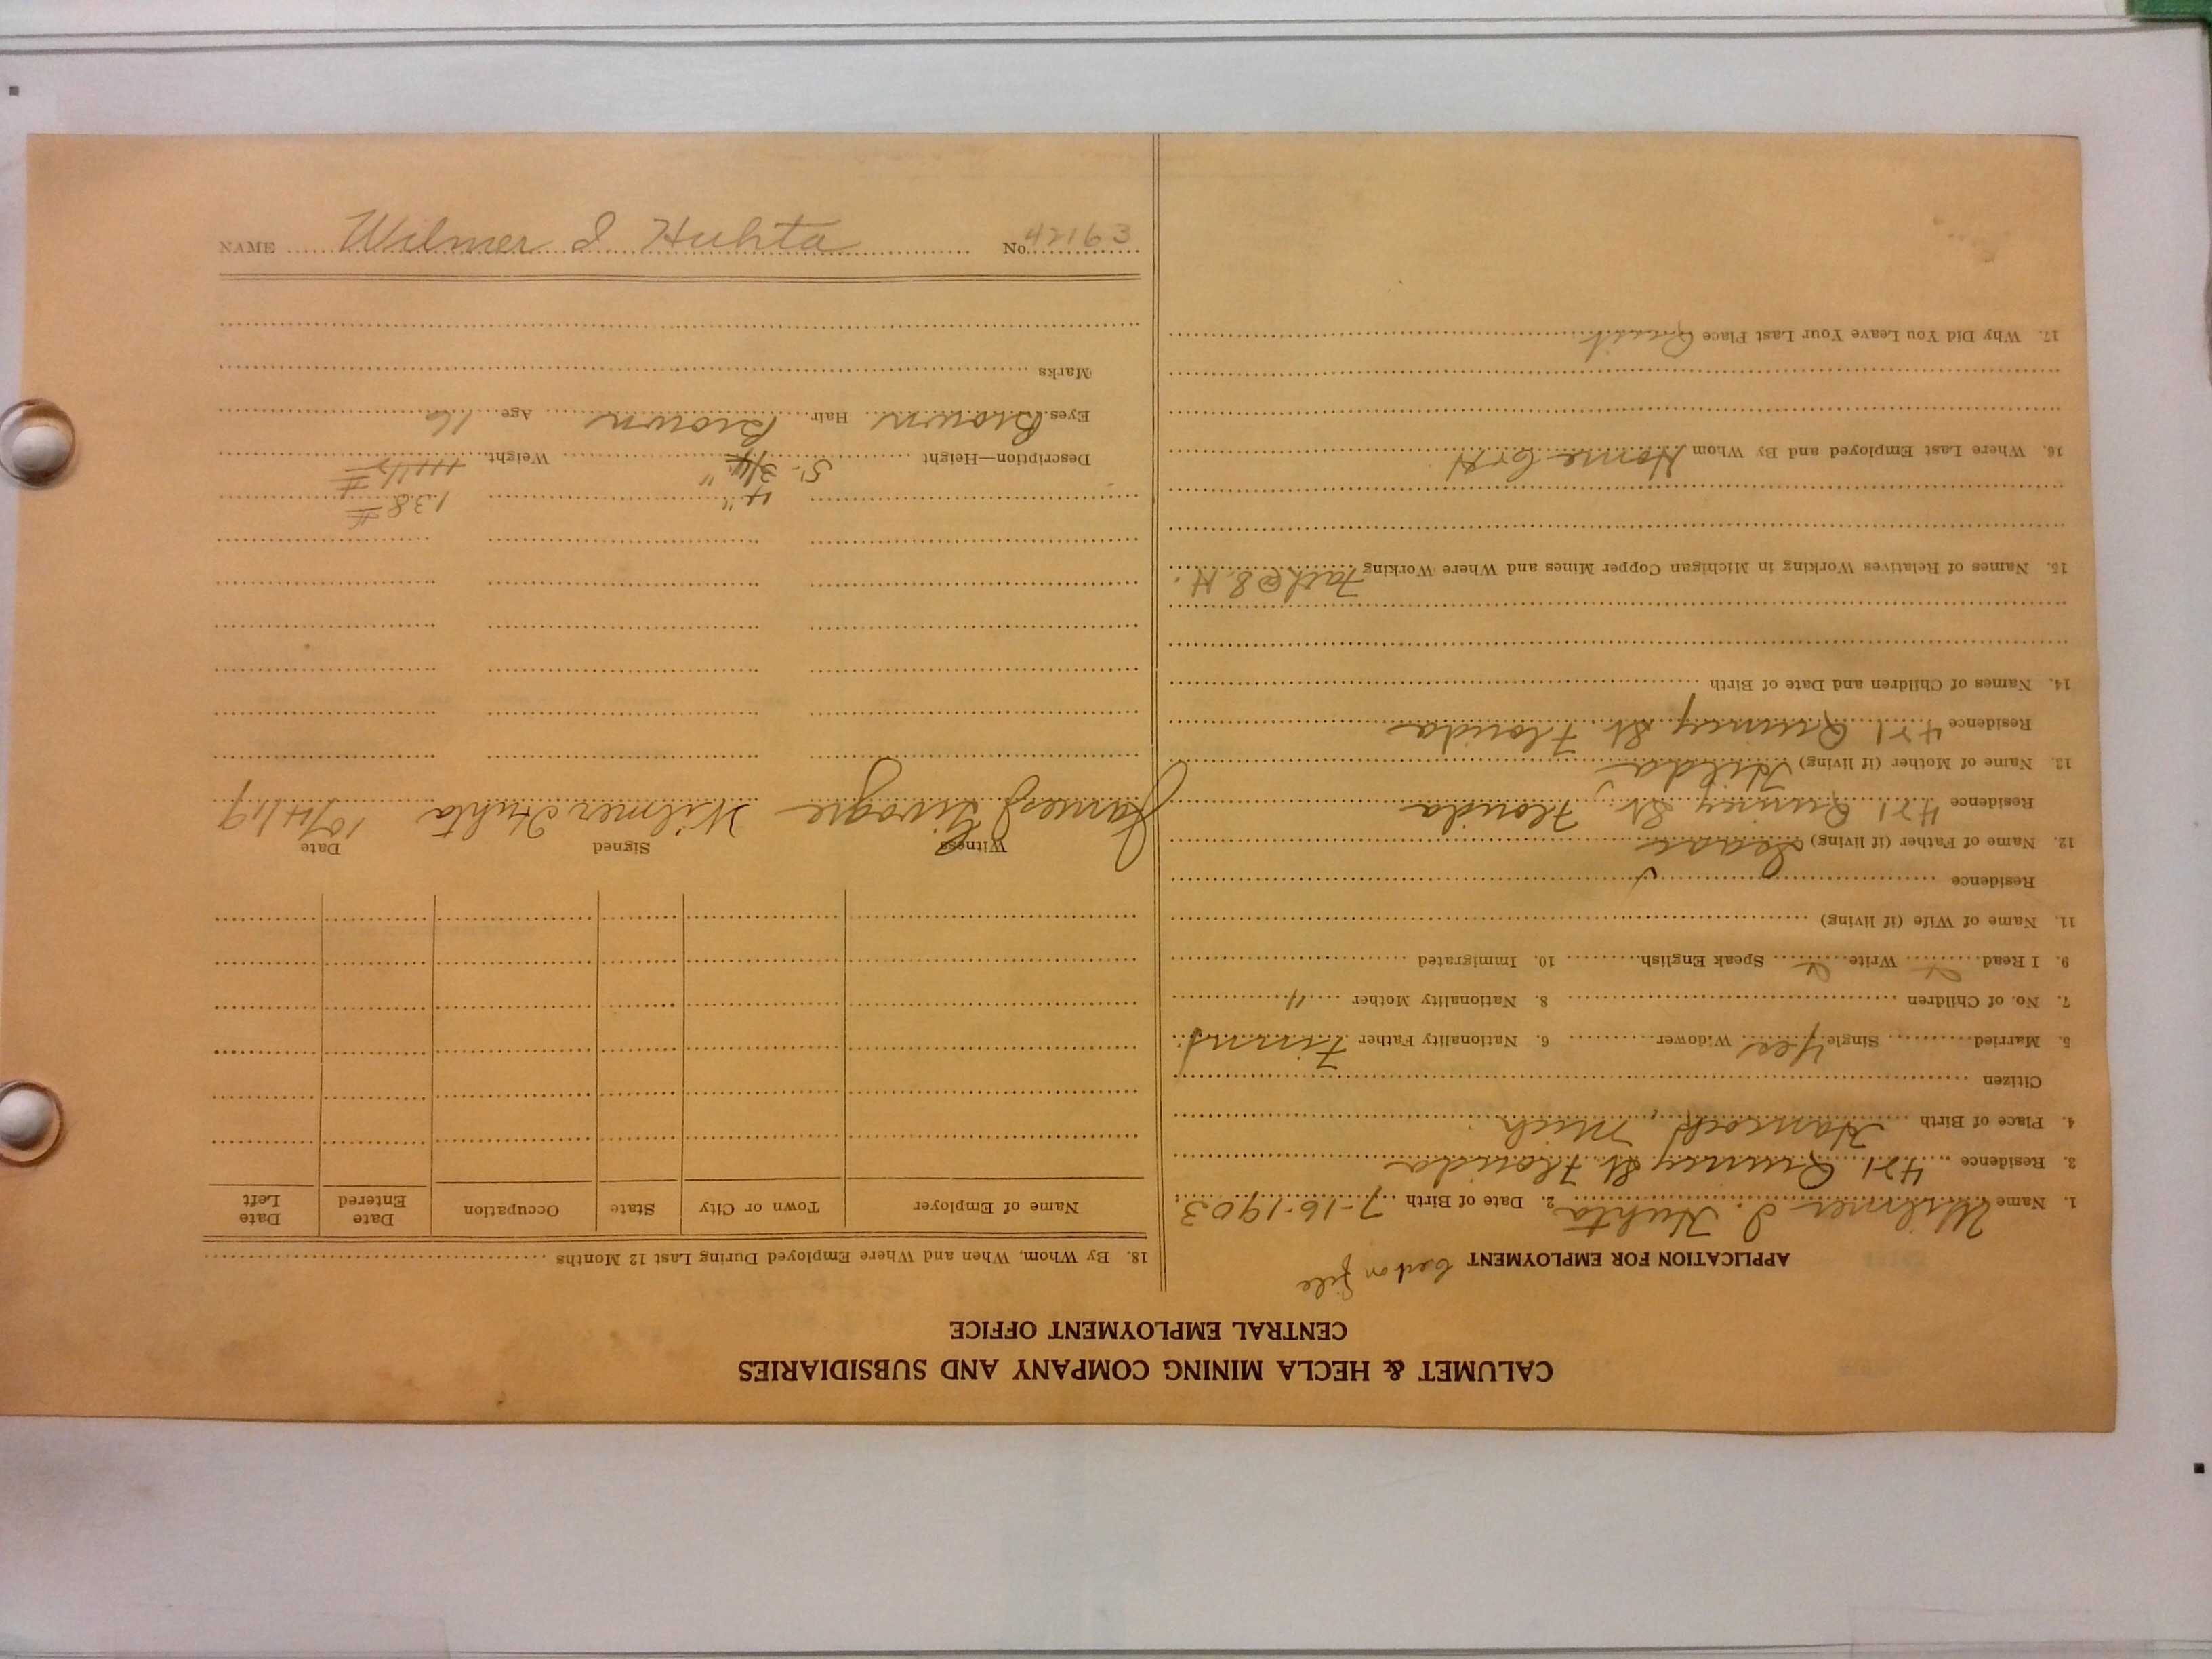 CALUMET & HECLA MINING COMPANY AND SUBSIDIARIES
CENTRAL EMPLOYMENT OFFICE
APPLICATION FOR EMPLOYMENT on file
1. Name Wilmer I. Huhta 2. Date of Birth 7-16-1903.
3. Residence 421 Quincy St. Florida
4. Place of Birth Hancock, Mich
Citizen
5. Married Single Yes Widower 6. Nationality Father Finns
7. No. of Children 8. Nationality Mother "
9. I Read Write Speak English 10. Immigrated
11. Name of Wife (if living)
Residence
12. Name of Father (if living) Isaac
Residence 421 Quincy St. Florida
13. Name of Mother (if living) Hilda
Residence 421 Quincy St. Florida
14. Names of Children and Date of Birth
15. Names of Relatives Working in Michigan Copper Mines and Where Working Fath @ 8, H.
16. Where Last Employed and By Whom Home C & H
17. Why Did You Leave Your Last Place Quit
18. By Whom, When and Where Employed During Last 12 Months
Name of Employer Town or City State Occupation Date Entered Date Left
Witness Signed Date
James J Wilmer Huhta 10/4/19
4" 138 #
Description—Height 5'- Weight
Eyes Brown Hair Brown Age 16
Marks
NAME Wilmer I Huhta No. 42163